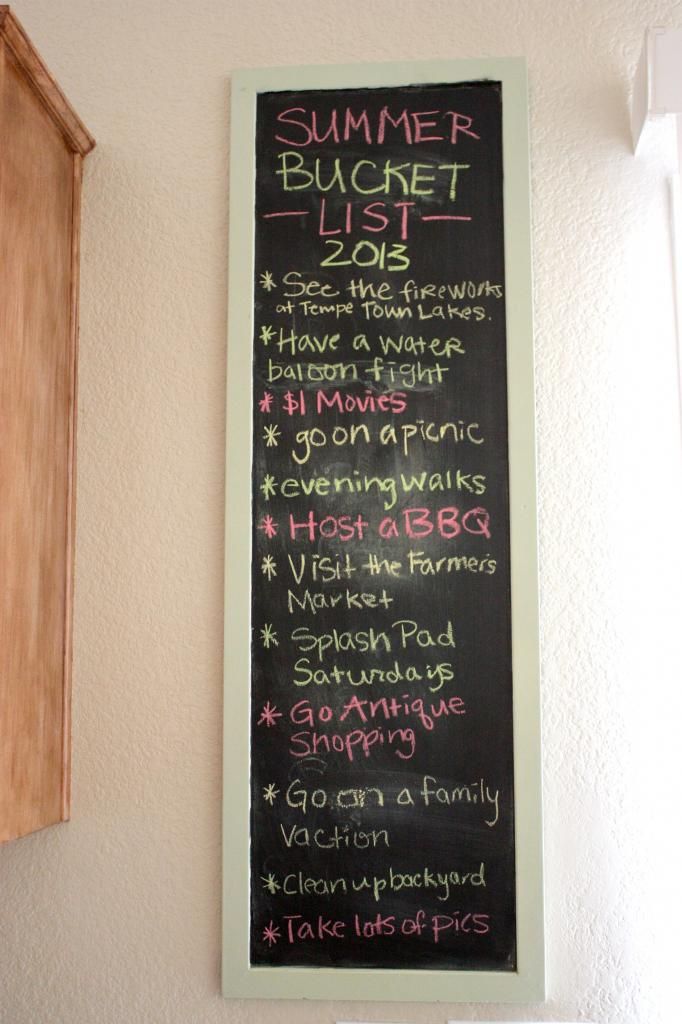 SUMMER
BUCKET
— LIST —
2013
* See the fireworks
at Tempe Town Lakes.
* Have a water
baloon fight
* $1 Movies
* go on a picnic
* evening walks
* Host a BBQ
* Visit the Farmer's
Market
* Splash Pad
Saturdays
* Go Antique
Shopping
* Go on a family
vaction
* Clean up backyard
* Take lots of pics